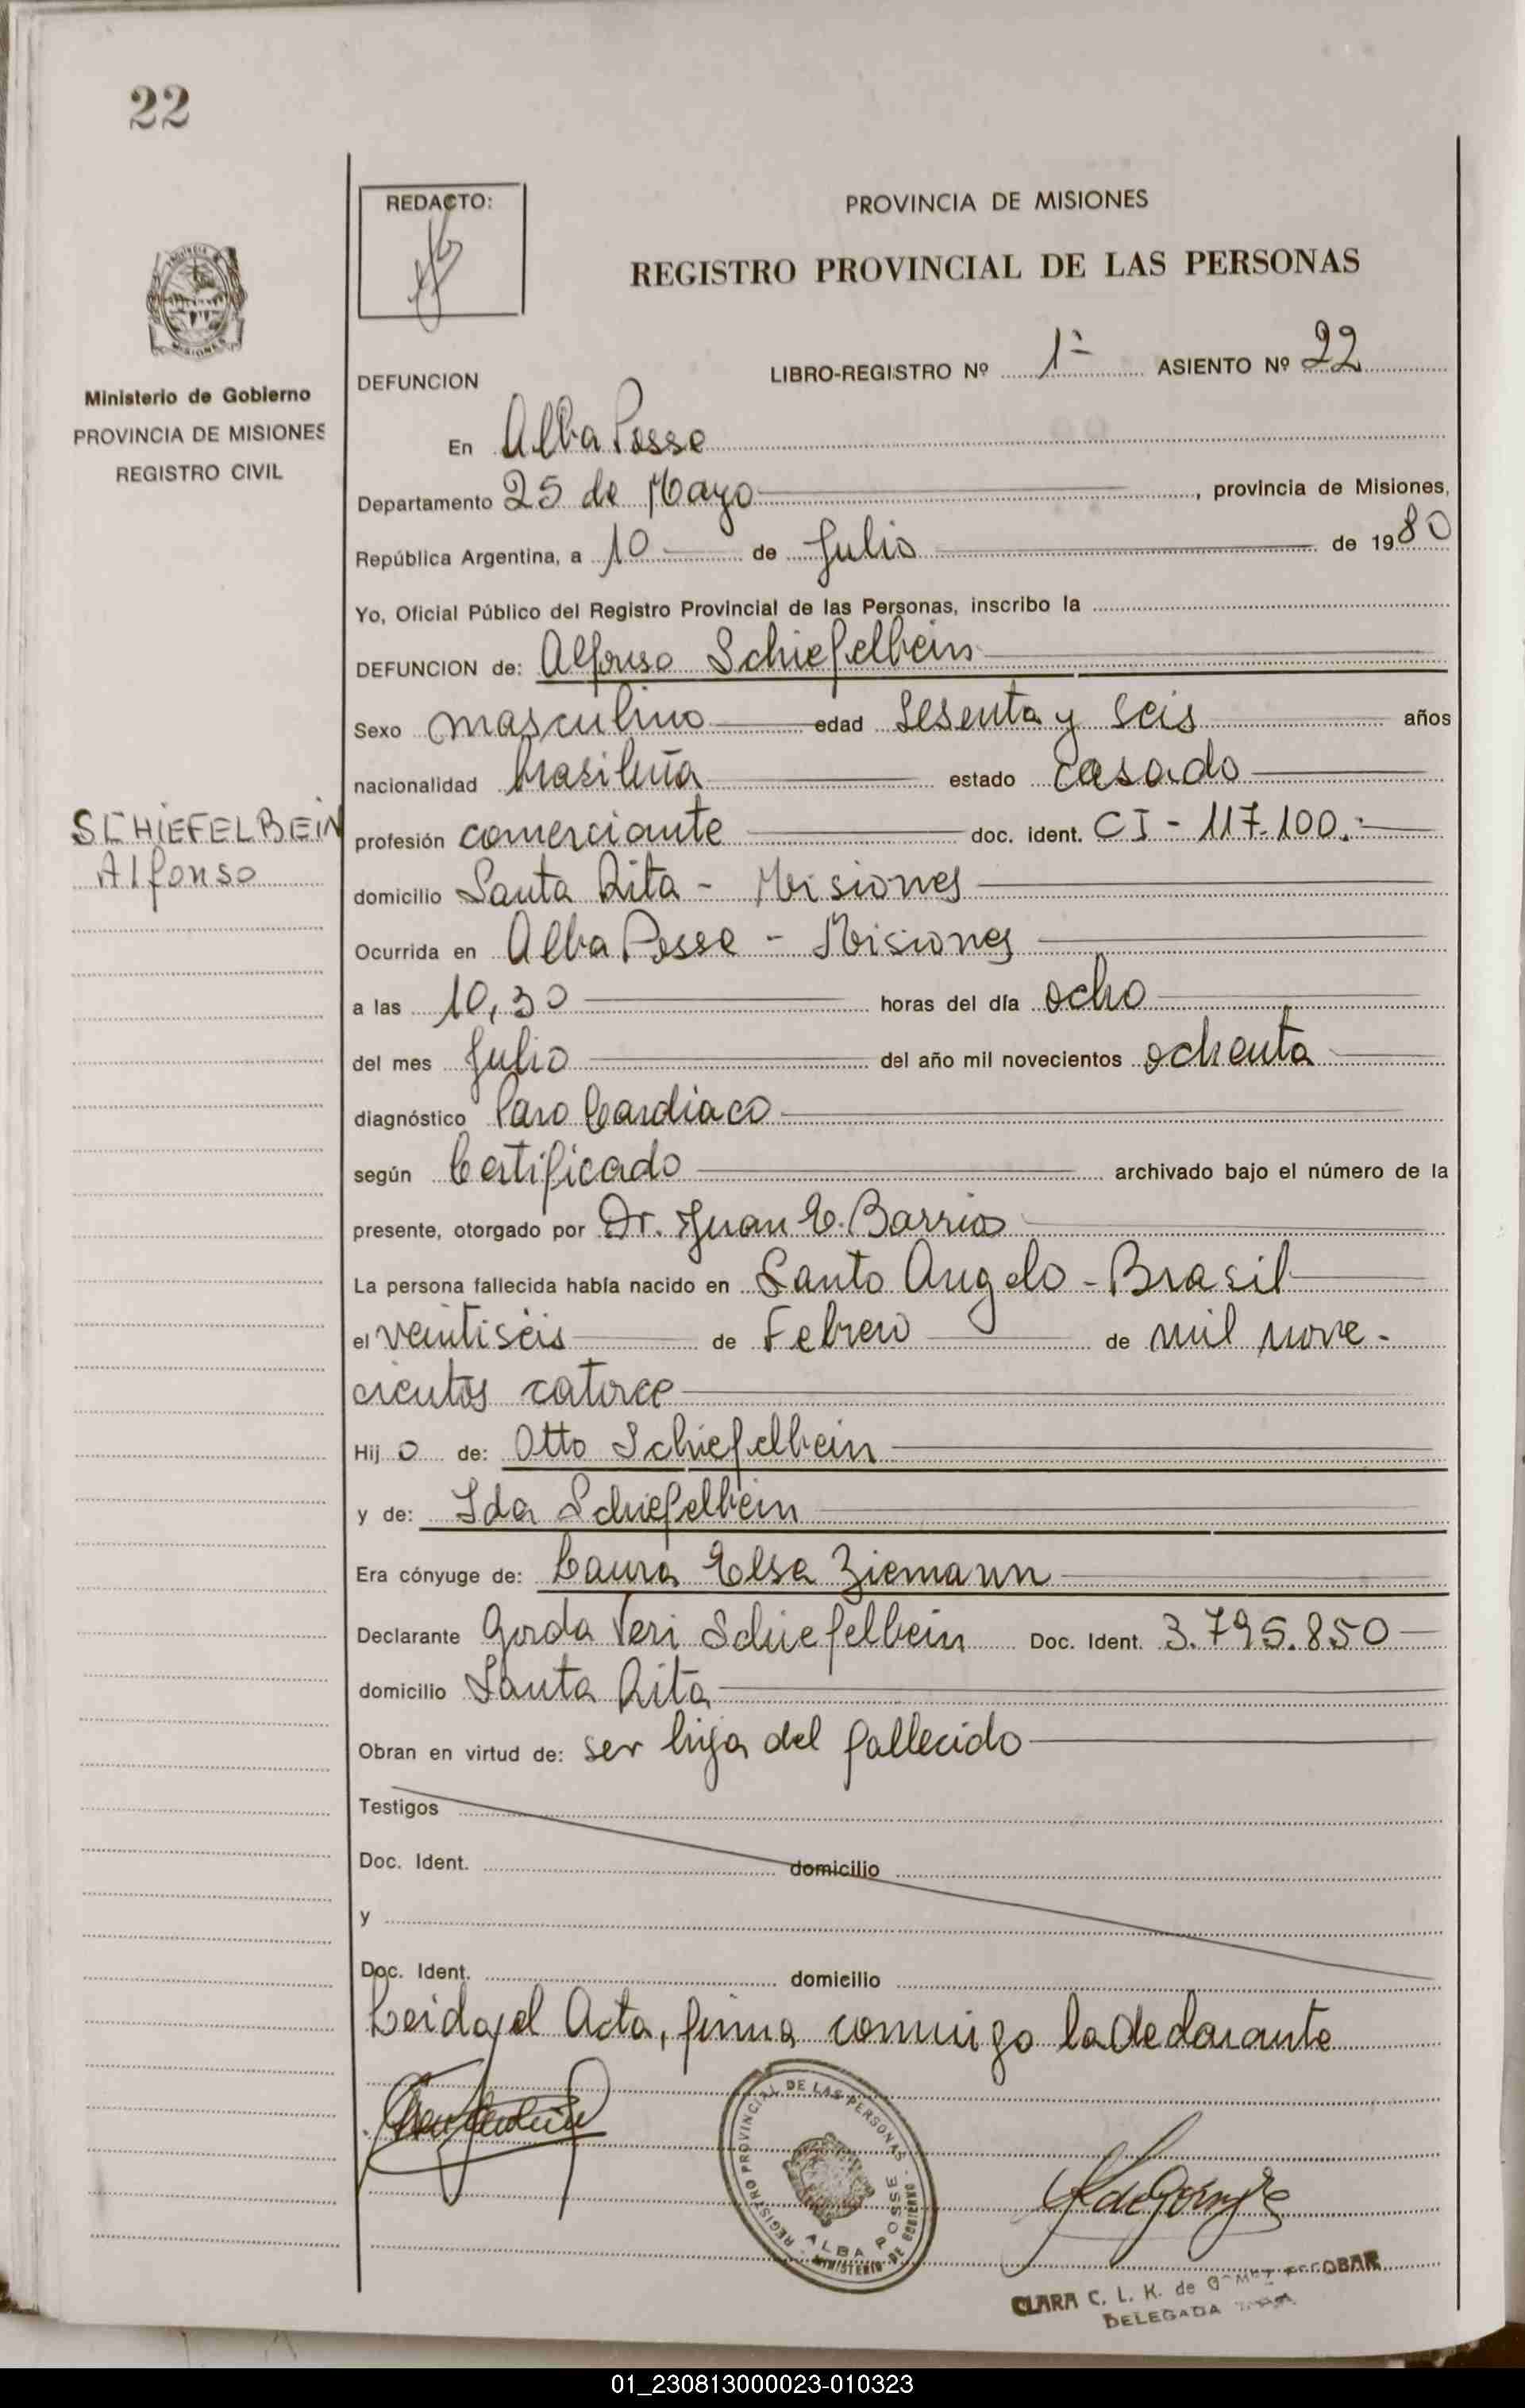 22
REDACTO:
PROVINCIA DE MISIONES
REGISTRO PROVINCIAL DE LAS PERSONAS
Ministerio de Gobierno
PROVINCIA DE MISIONES
REGISTRO CIVIL
DEFUNCION
LIBRO-REGISTRO Nº 1º ASIENTO Nº 22
En Alba Posse
Departamento 25 de Mayo, provincia de Misiones,
República Argentina, a 10 de Julio de 1980
Yo, Oficial Público del Registro Provincial de las Personas, inscribo la
DEFUNCION de: Alfonso Schiefelbein
Sexo masculino edad sesenta y seis años
nacionalidad brasileña estado casado
SCHIEFELBEIN
Alfonso
profesión comerciante doc. ident. CI - 117.100.-
domicilio Santa Rita - Misiones
Ocurrida en Alba Posse - Misiones
a las 10,30 horas del día ocho
del mes Julio del año mil novecientos ochenta
diagnóstico Paro Cardiaco
según Certificado archivado bajo el número de la
presente, otorgado por Dr. Juan C. Barrios
La persona fallecida había nacido en Santo Angelo - Brasil
el veintiseis de Febrero de mil nove-
cientos catorce
Hijo de: Otto Schiefelbein
y de: Ida Schiefelbein
Era cónyuge de: Laura Elsa Ziemann
Declarante Veri Schiefelbein Doc. Ident. 3.795.850
domicilio Santa Rita
Obran en virtud de: ser hija del fallecido
Testigos
Doc. Ident. domicilio
y
Doc. Ident. domicilio
Leida el Acta, firma conmigo la declarante
REGISTRO PROVINCIAL DE LAS PERSONAS
ALBA POSSE
MINISTERIO DE GOBIERNO
CLARA C. L. K. de GOMEZ ESCOBAR
DELEGADA
01_230813000023-010323